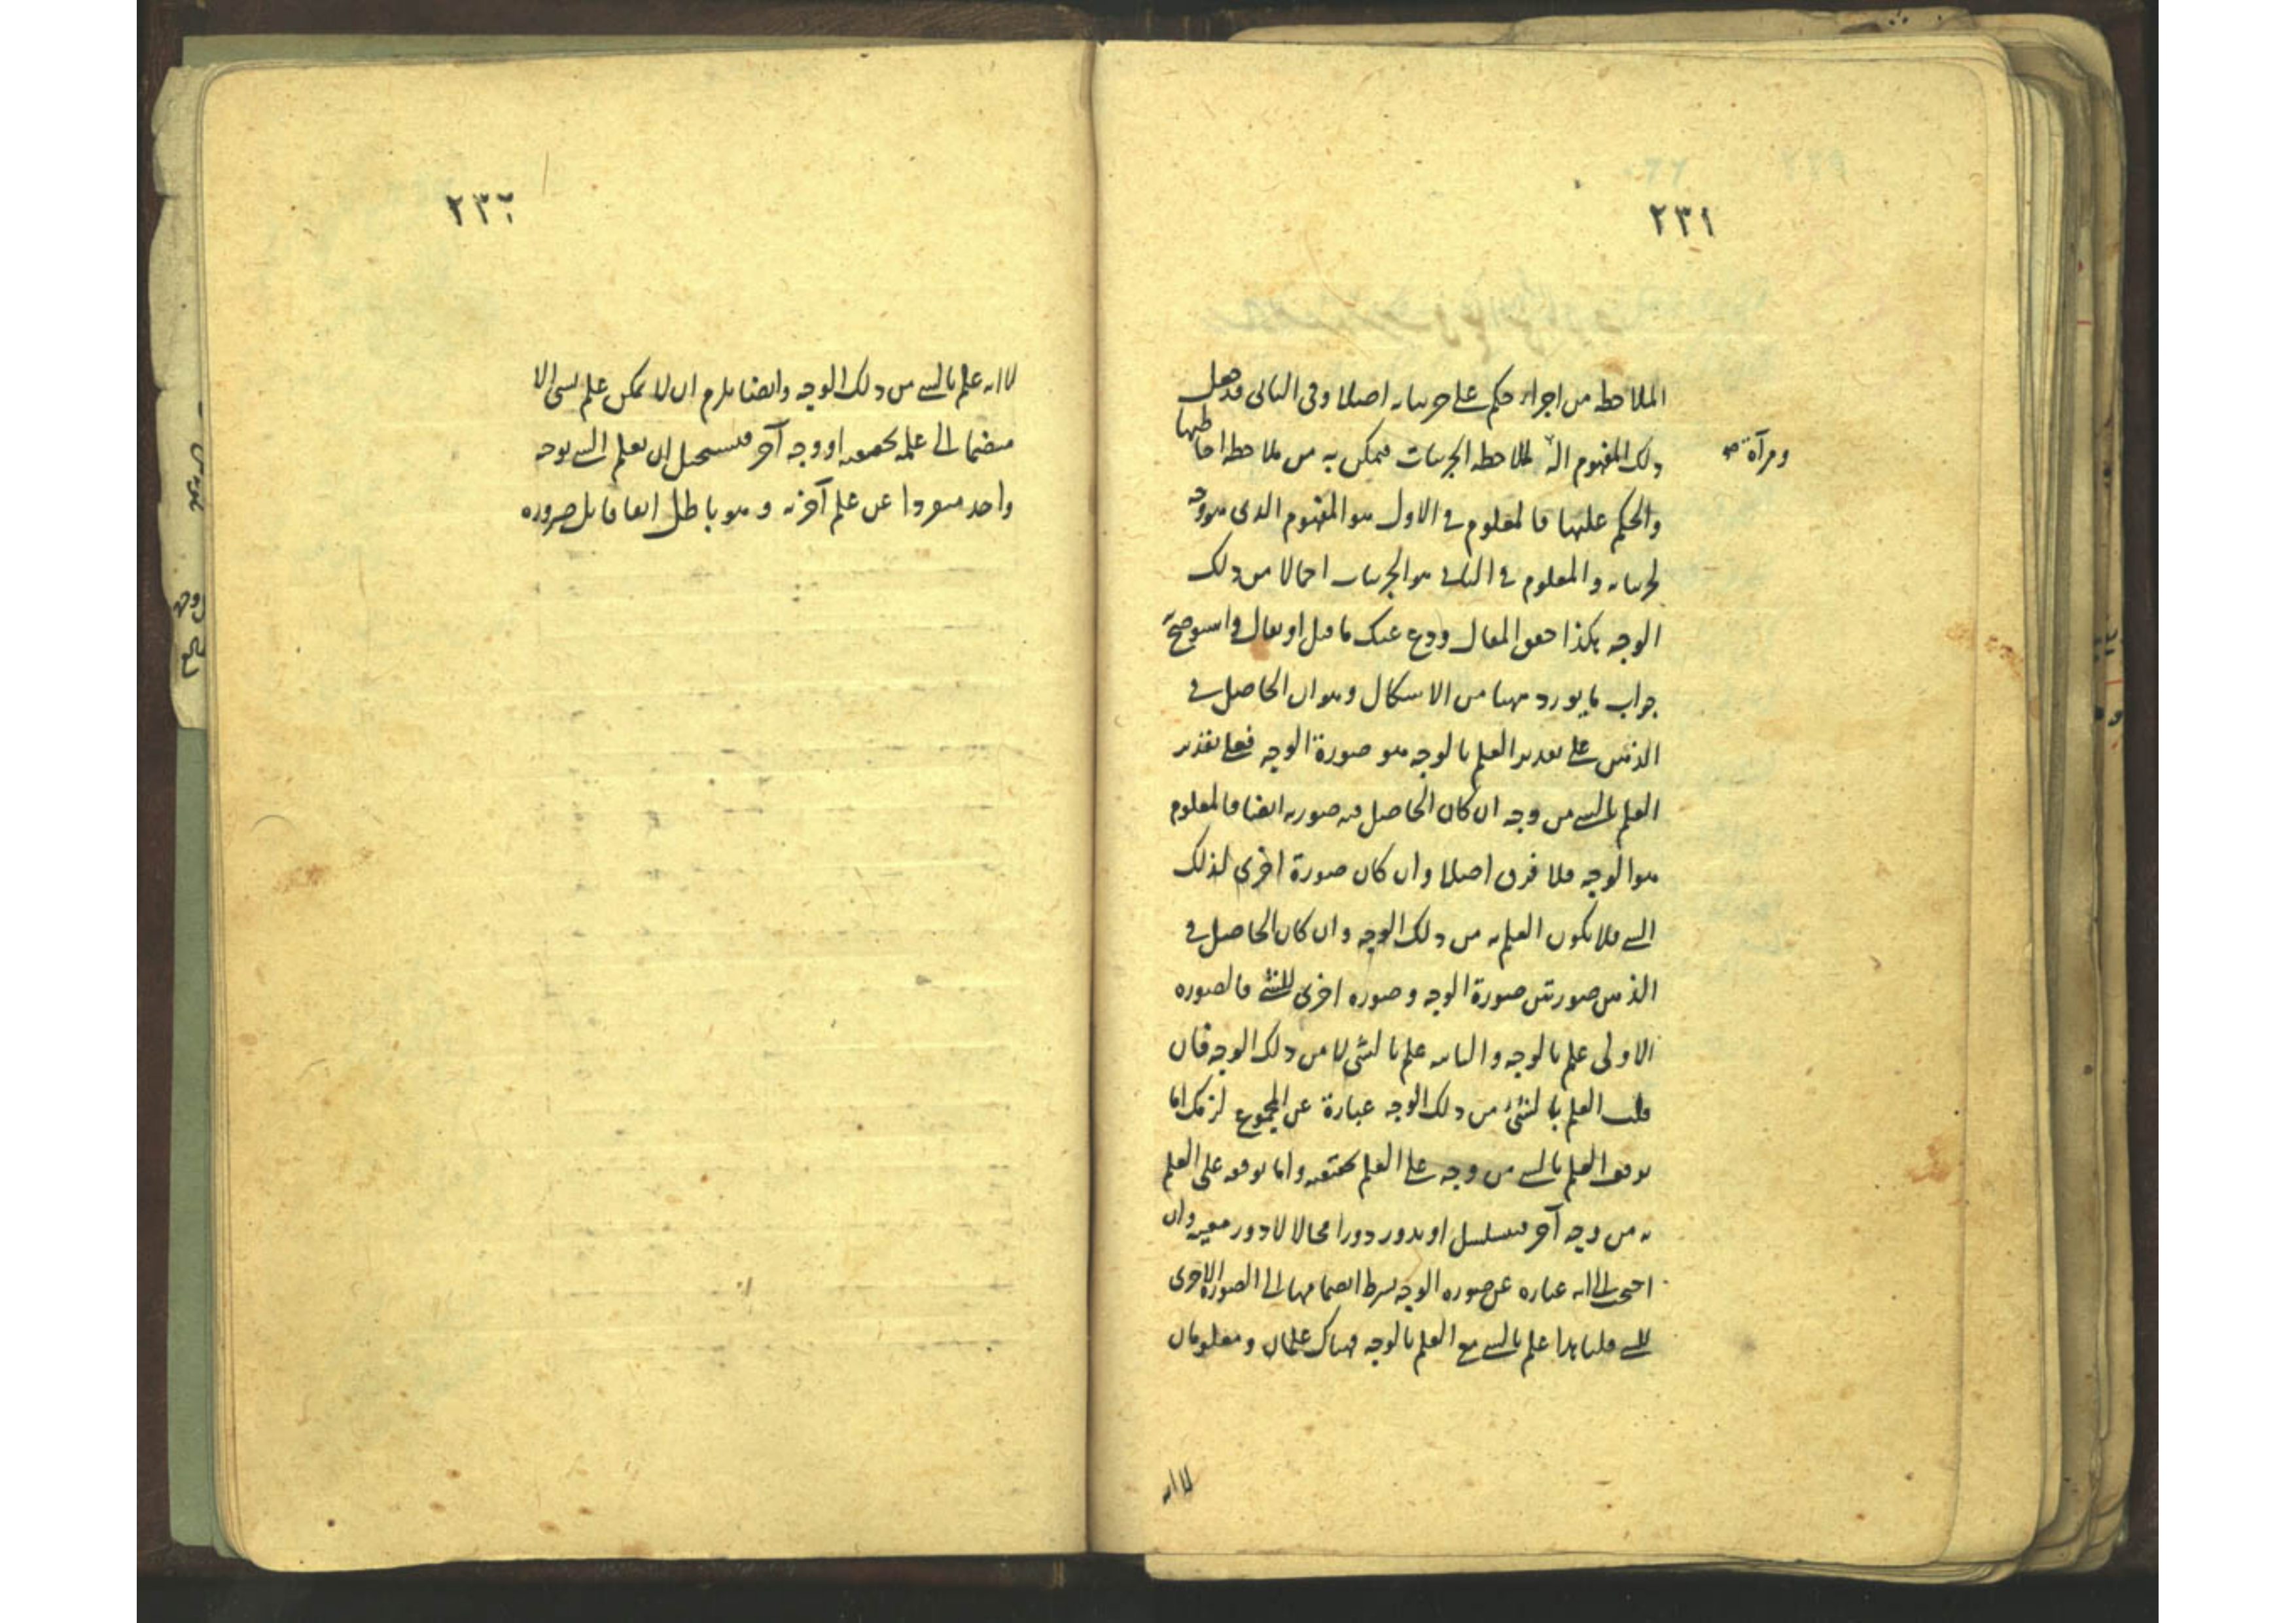 ٢٣١
الملاحظه من اجراء حكم على جزئياته اصلا وفى الثانى قد جعل
ذلك المفهوم آلة لملاحظه الجزئيات فيمكن به من ملاحظه احاطتها
ومرآة صح
والحكم عليها فالمعلوم فى الاول هو المفهوم الذى هو وجه
لجزئياته والمعلوم فى الثانى هو الجزئيات اجمالا من ذلك
الوجه هكذا حقق المقال ودع عنك ما قيل او يقال واستوضح
جواب ما يورد ههنا من الاشكال وهو ان الحاصل فى
الذهن على تقدير العلم بالوجه هو صورة الوجه فعلى تقدير
العلم بالشى من وجه ان كان الحاصل فيه صورته ايضا فالمعلوم
هو الوجه فلا فرق اصلا وان كان صورة اخرى لذلك
الشى فلا يكون العلم به من ذلك الوجه وان كان الحاصل فى
الذهن صورتين صورة الوجه وصوره اخرى للشئ فالصوره
الاولى علم بالوجه والثانيه علم بالشئ لا من ذلك الوجه فان
قلت العلم بالشئ من ذلك الوجه عبارة عن المجموع لزمك اما
توقف العلم بالشى من وجه على العلم بحقيقته واما توقفه على العلم
به من وجه آخر فيتسلسل او يدور دورا محالا لا دور معيه وان
الى انه عباره عن صوره الوجه بشرط انضمامها الى الصورة الاخرى
للشى قلنا هذا علم بالشى مع العلم بالوجه فهناك علمان ومعلومان
لا انه
٢٣٢
لا انه علم بالشى من ذلك الوجه وايضا يلزم ان لا يمكن علم بشى الا
منضما الى علمه بحقيقته او وجه آخر فيستحيل ان يعلم الشى بوجه
واحد منفردا عن علم آخر به وهو باطل اتفاقا بل ضروره